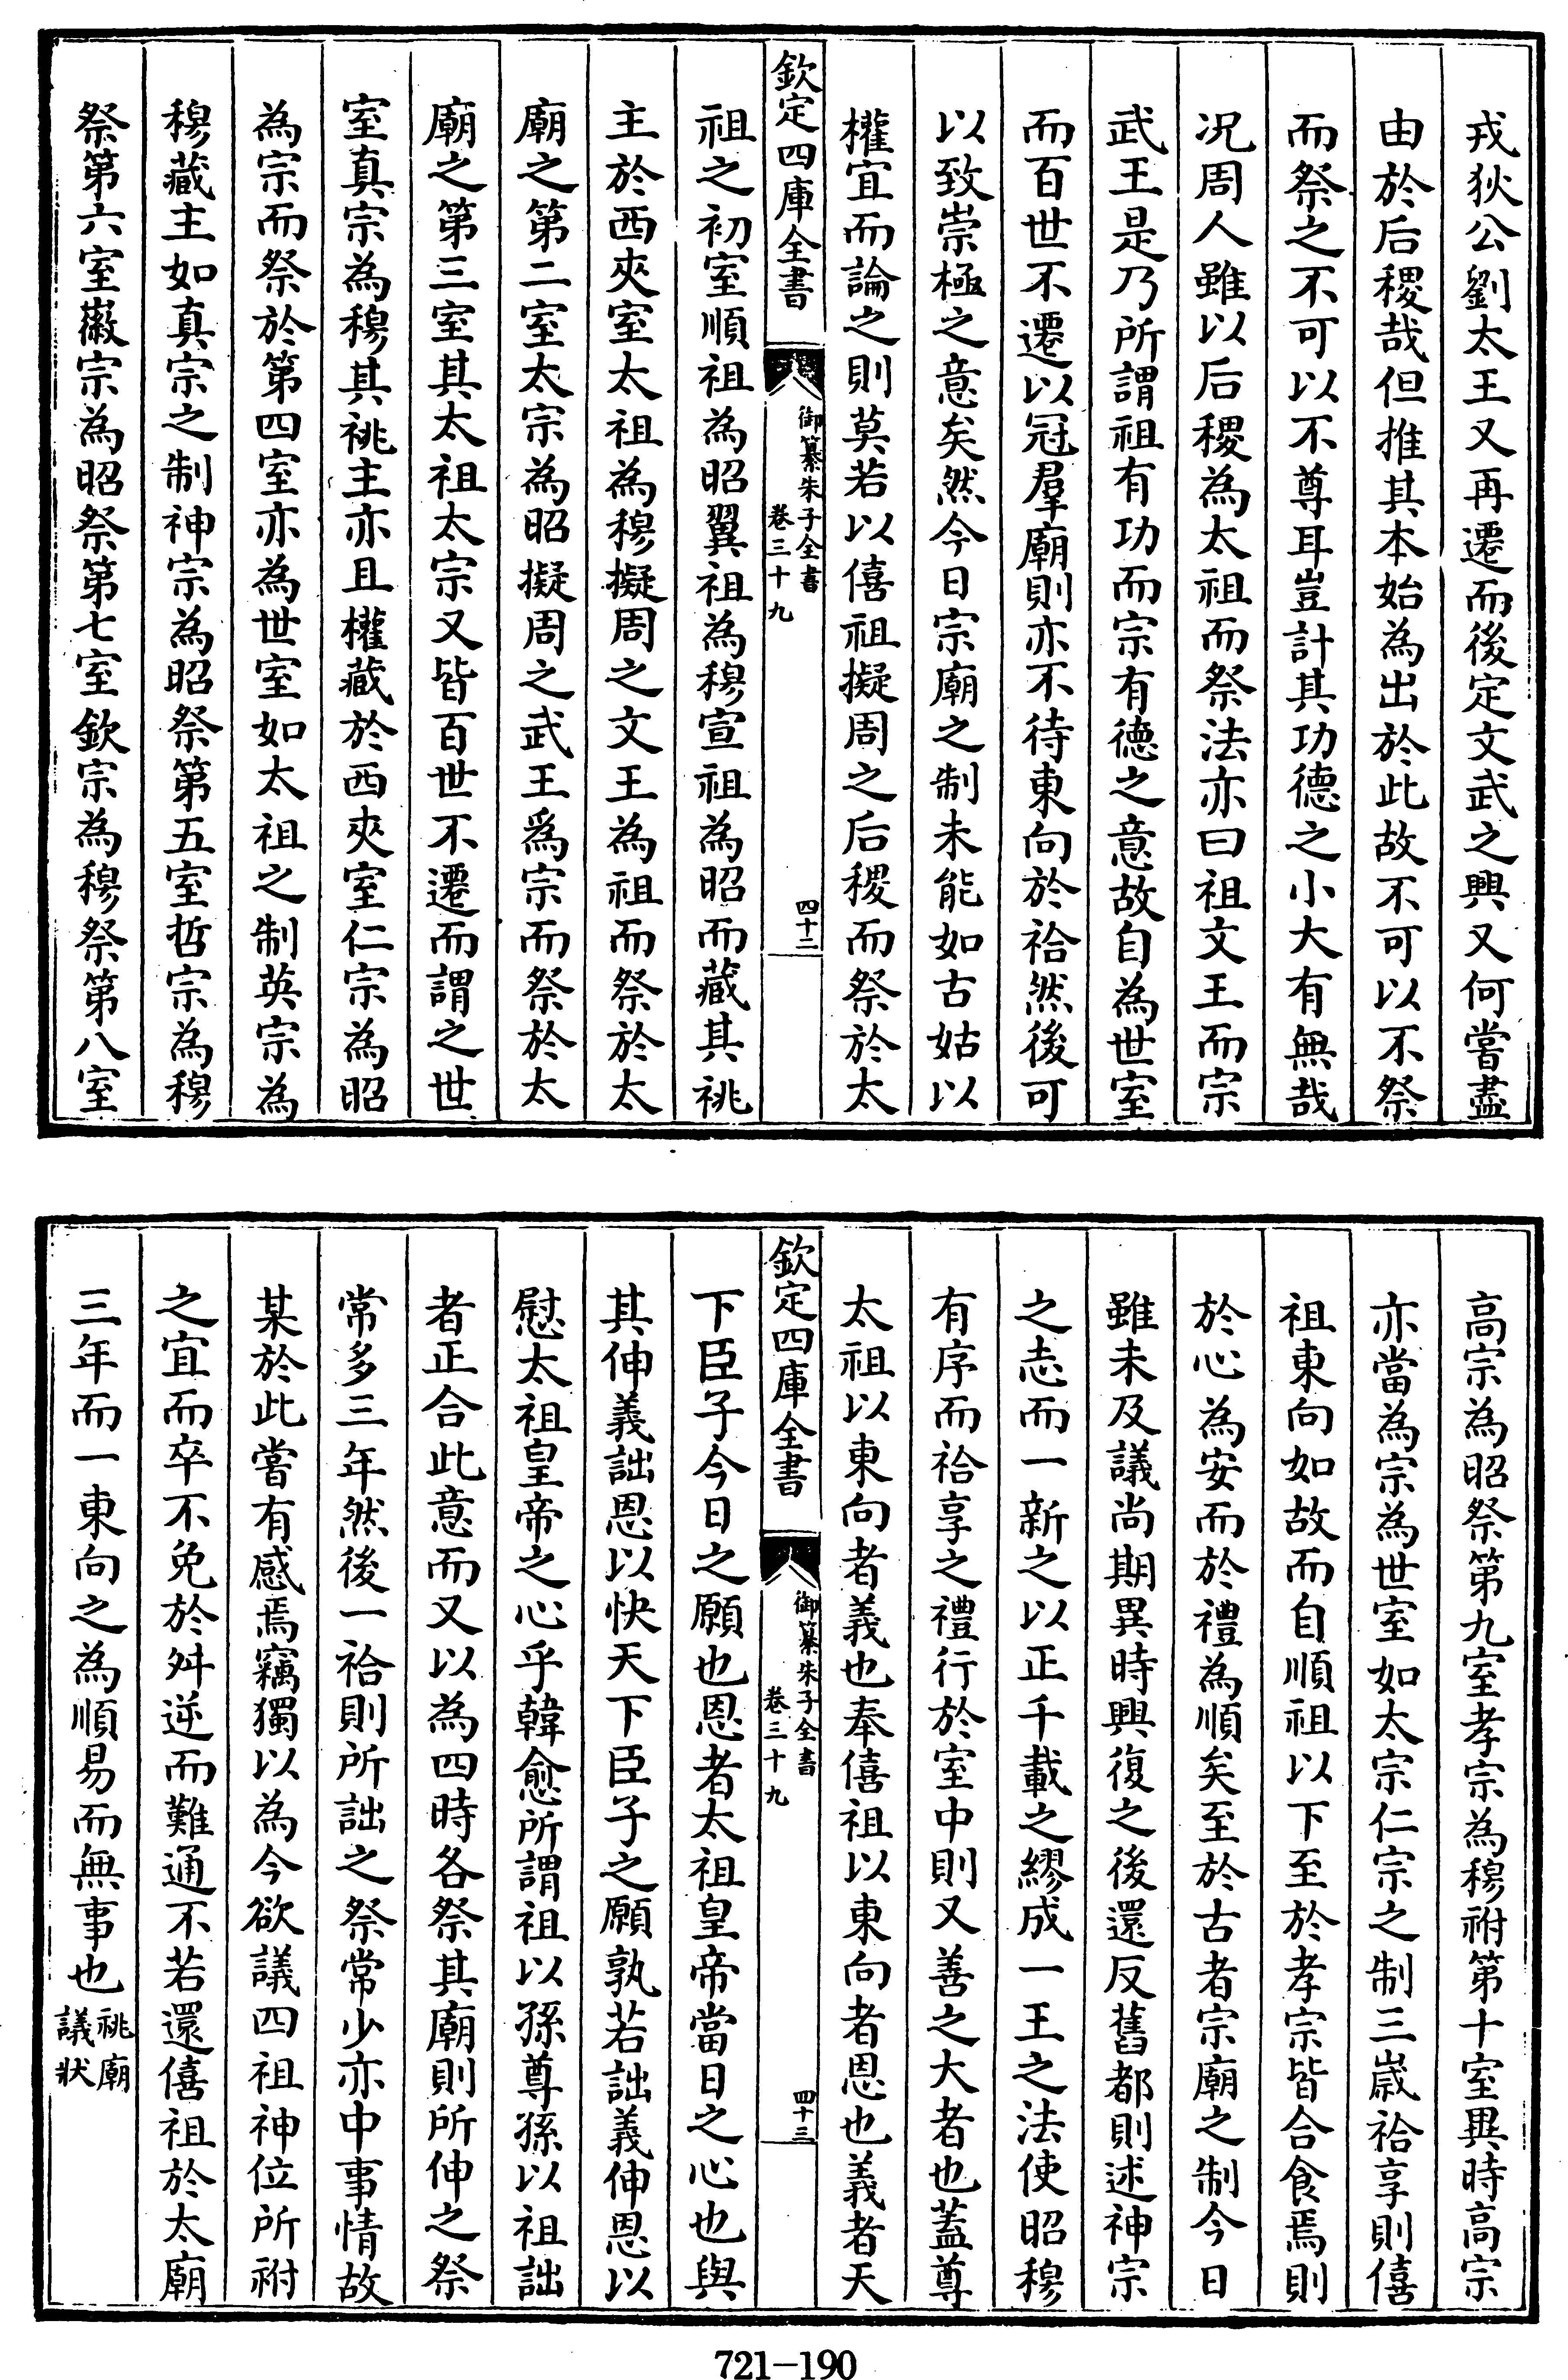 戎狄公劉太王又再遷而後定文武之興又何嘗盡
由於后稷哉但推其本始為出於此故不可以不祭
而祭之不可以不尊耳豈計其功德之小大有無哉
况周人雖以后稷為太祖而祭法亦曰祖文王而宗
武王是乃所謂祖有功而宗有德之意故自為世室
而百世不遷以冠羣廟則亦不待東向於祫然後可
以致崇極之意矣然今日宗廟之制未能如古姑以
權宜而論之則莫若以僖祖擬周之后稷而祭於太
欽定四庫全書
御纂朱子全書
卷三十九
四十二
祖之初室順祖為昭翼祖為穆宣祖為昭而藏其祧
主於西夾室太祖為穆擬周之文王為祖而祭於太
廟之第二室太宗為昭擬周之武王爲宗而祭於太
廟之第三室其太祖太宗又皆百世不遷而謂之世
室真宗為穆其祧主亦且權藏於西夾室仁宗為昭
為宗而祭於第四室亦為世室如太祖之制英宗為
穆藏主如真宗之制神宗為昭祭第五室哲宗為穆
祭第六室徽宗為昭祭第七室欽宗為穆祭第八室
高宗為昭祭第九室孝宗為穆祔第十室異時高宗
亦當為宗為世室如太宗仁宗之制三歲祫享則僖
祖東向如故而自順祖以下至於孝宗皆合食焉則
於心為安而於禮為順矣至於古者宗廟之制今日
雖未及議尚期異時興復之後還反舊都則述神宗
之志而一新之以正千載之繆成一王之法使昭穆
有序而祫享之禮行於室中則又善之大者也蓋尊
太祖以東向者義也奉僖祖以東向者恩也義者天
欽定四庫全書
御纂朱子全書
卷三十九
四十三
下臣子今日之願也恩者太祖皇帝當日之心也與
其伸義詘恩以快天下臣子之願孰若詘義伸恩以
慰太祖皇帝之心乎韓愈所謂祖以孫尊孫以祖詘
者正合此意而又以為四時各祭其廟則所伸之祭
常多三年然後一祫則所詘之祭常少亦中事情故
某於此嘗有感焉竊獨以為今欲議四祖神位所祔
之宜而卒不免於舛逆而難通不若還僖祖於太廟
三年而一東向之為順易而無事也祧廟
議狀
721-190